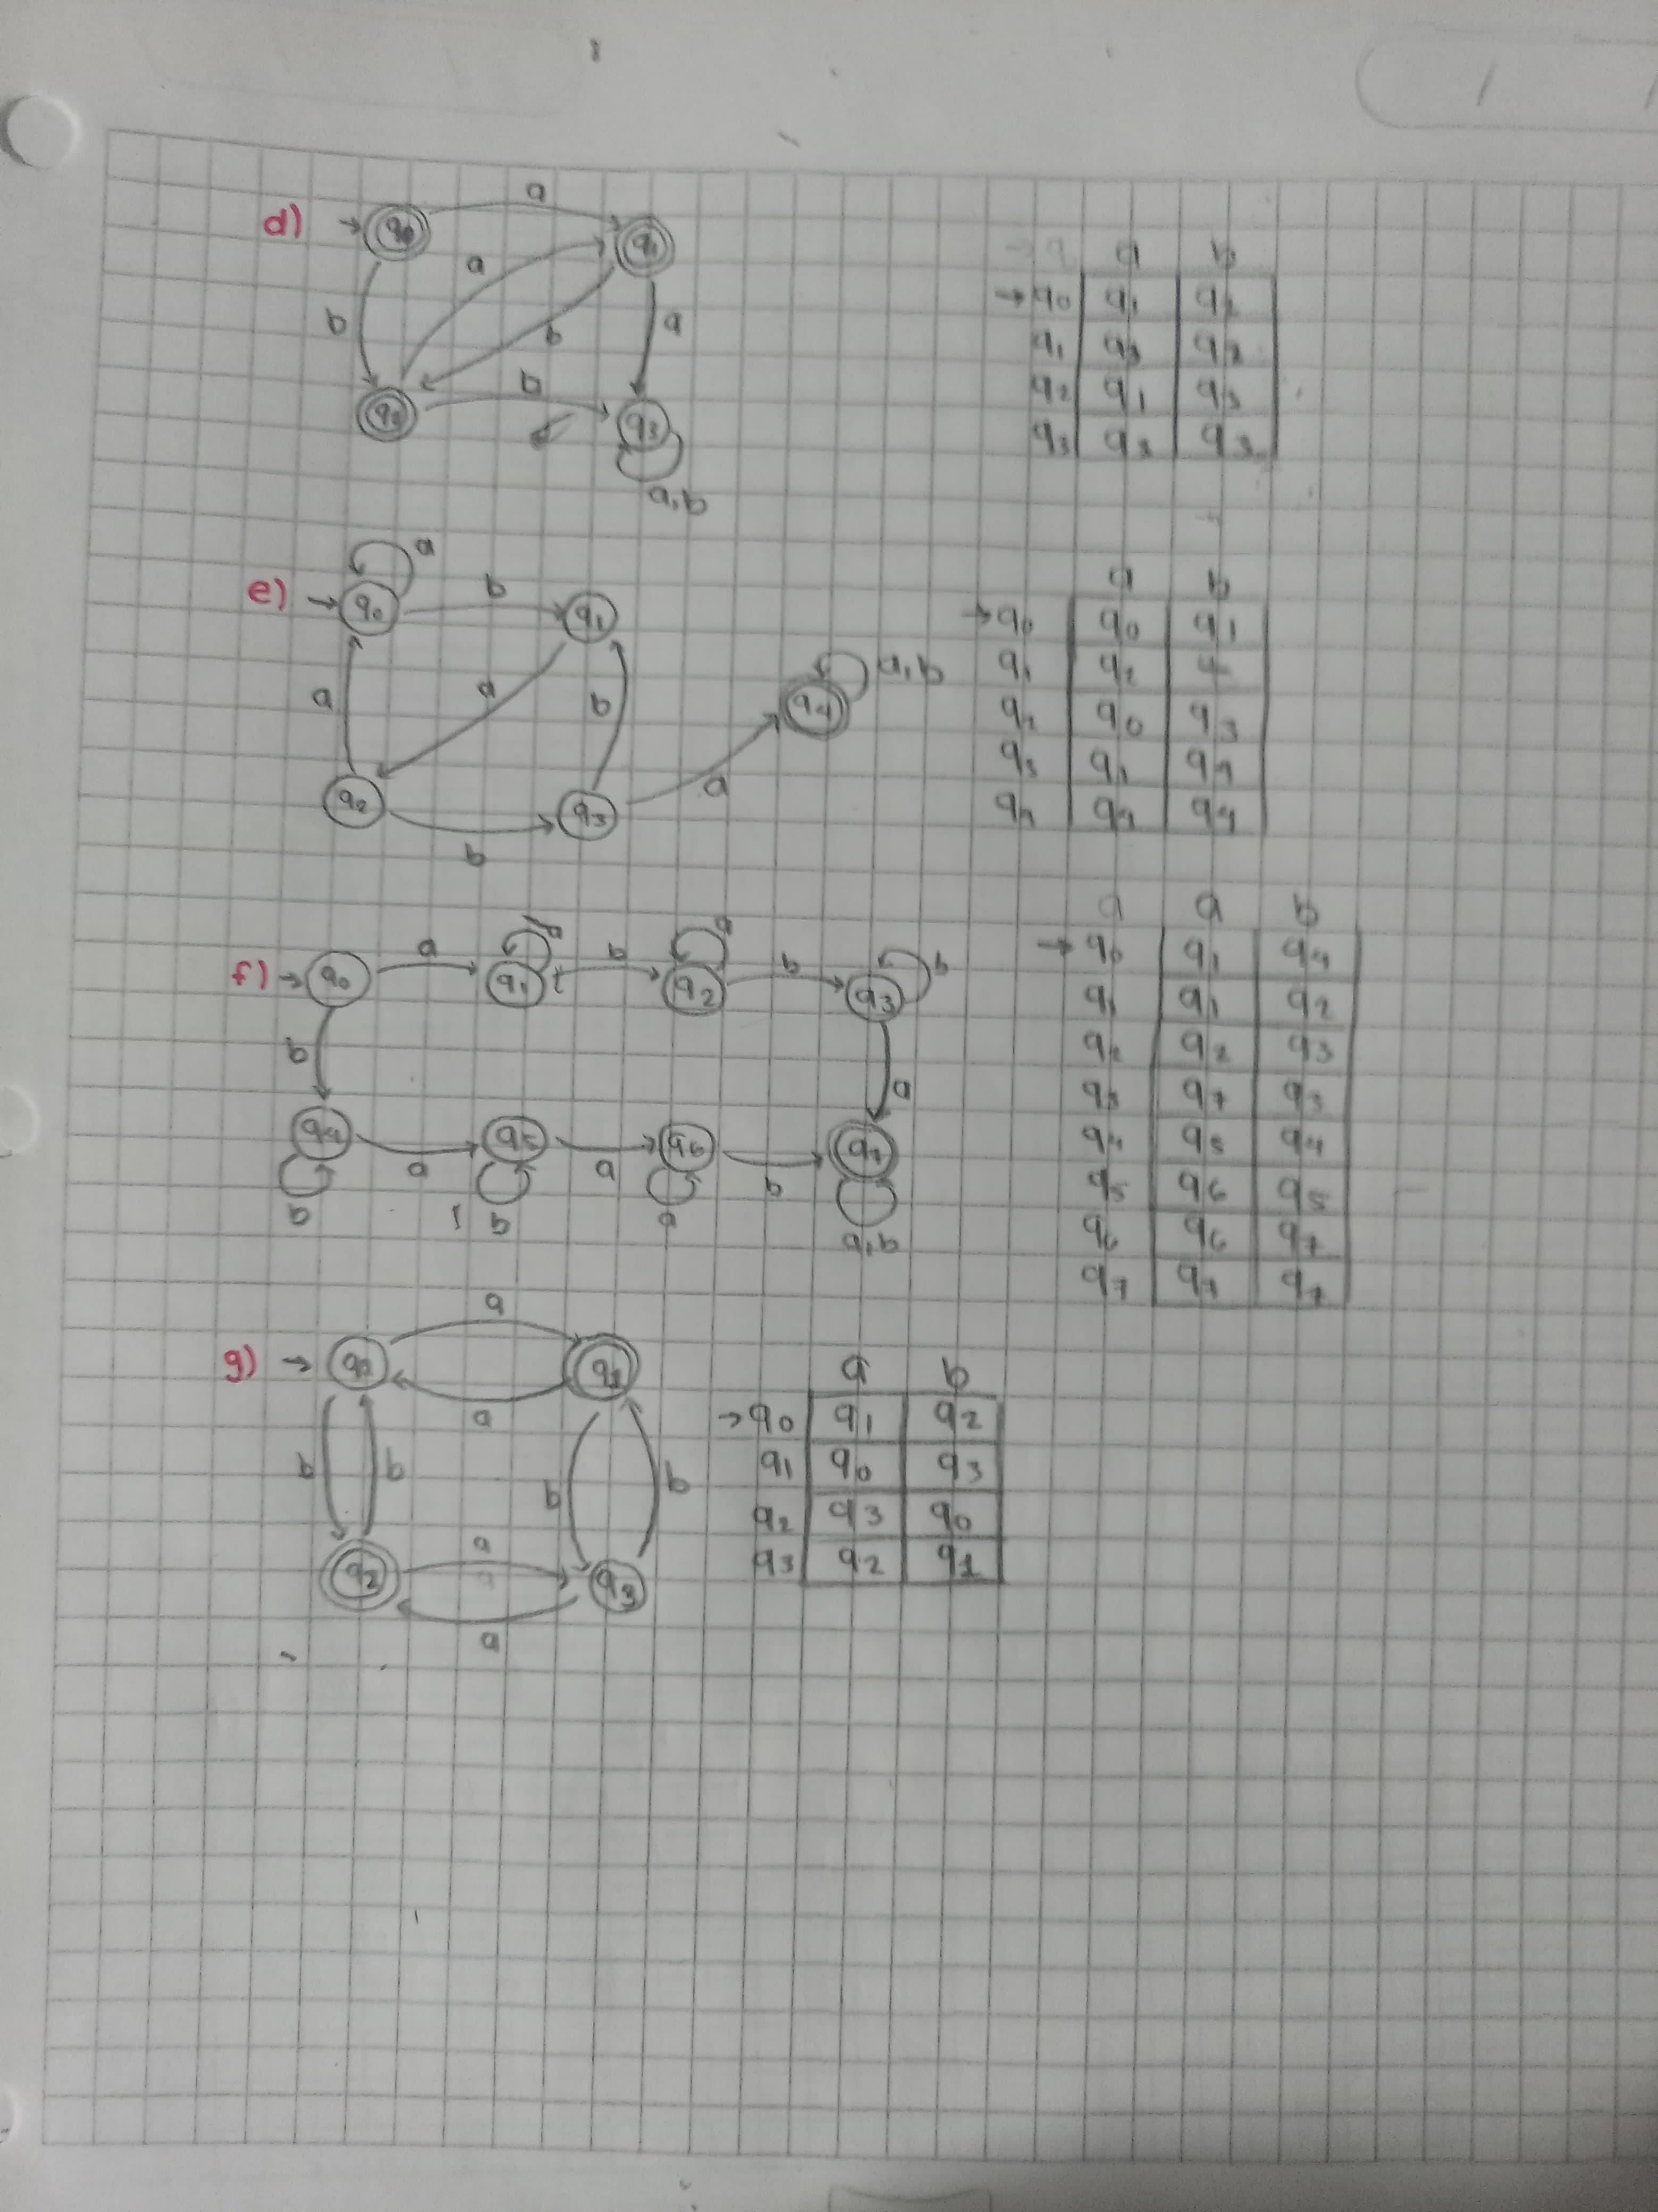 d) → q0 a q1
a
b b a
q2 b q3
a,b
a b
→q0 q1 q2
q1 q3 q2
q2 q1 q3
q3 q3 q3
e) a
→ q0 b q1
a a b q4 a,b
q2 b q3 a
a b
→q0 q0 q1
q1 q2
q2 q0 q3
q3 q1 q4
q4 q4 q4
f) → q0 a q1 b q2 b q3 b
a
b a
q4 a q5 a q6 b q7
b b a a,b
a b
→ q0 q1 q4
q1 q1 q2
q2 q2 q3
q3 q7 q3
q4 q5 q4
q5 q6 q5
q6 q6 q7
q7 q7 q7
g) → q0 a q1
a
b b b b
q2 a q3
a
a b
→q0 q1 q2
q1 q0 q3
q2 q3 q0
q3 q2 q1